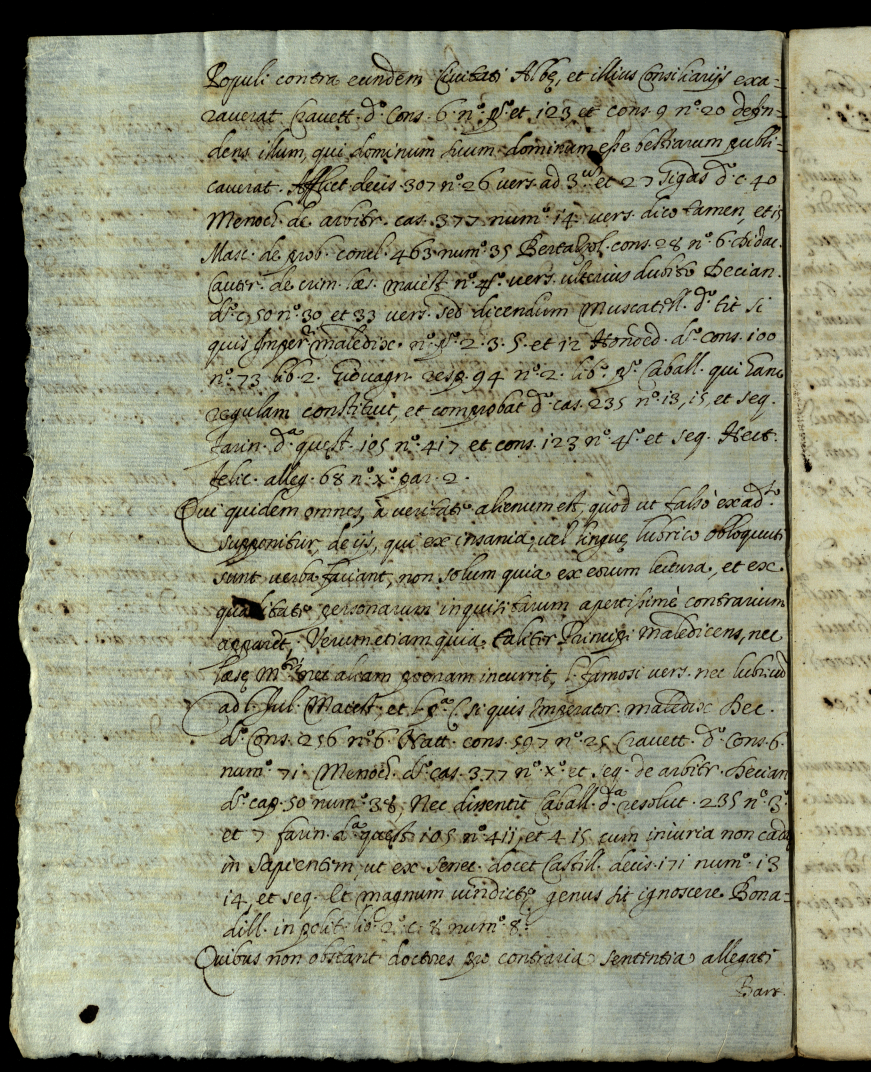 Populi contra eundem Civitati Albę, et illius Consiliarijs exa=
raverat Cravett. d.º Cons. 6 n.º p.º et 123, et cons. 9 n.º 20 defen=
dens illum, qui dominum suum dominum esse bestiarum publi=
caverat. Afflict decis. 307 n.º 26 vers. ad 3.um et 27 Gigas d.º c. 40
Menoch. de arbitr. cas. 377 num.º 14. vers. dico tamen, et 15
Masc. de prob. concl. 463 num.º 35 Bertazol. cons. 28 n.º 6. Didac.
Canter. de crim. læs. maiest n.º 4.º vers. ulterius dubito Decian.
d.º c. 50 n.º 30 et 33 vers. sed dicendum Muscatell. d.º tit si
quis Imper.ri maledix. n.º p.º 2. 3. 5. et 12 Honded. d.º cons. 100
n.º 73 lib. 2. Guvagn. resp. 94 n.º 2. lib.º p.º Caball. qui hanc
regulam constituit, et comprobat d.º cas. 235 n.º 13, 15 et seq.
Farin. d.ª quęst. 105 n.º 417 et cons. 123 n.º 4.º et seq. Hect.
felic. alleg. 68 n.º x.º par. 2.
Qui quidem omnes, à veritate alienum est, quod ut falsò ex ad.º
supponitur, de ijs, qui ex insania, vel linguę lubrico obloquuti
sunt verba faciant, non solum quia ex eorum lectura, et ex
qualitate personarum inquisitarum apertissimè contrarium
apparet, Verum etiam quia taliter Principi maledicens, nec
læsę M.tis nec aliam poenam incurrit, l. famosi vers. nec lubricum
ad l. Jul. Maiest., et l. p.ª C. si quis Imperator. maledix Dec.
d.º Cons. 256 n.º 6. Natt. cons. 597 n.º 25 Cravett. d.º Cons. 6.
num.º 71. Menoch. d.º cas. 377 n.º x.º et seq. de arbitr. Decian
d.º cap. 50 num.º 38, Nec dissentit Caball. d.ª resolut. 235 n.º 3.º
et 7 farin. d.ª quęst. 105 n.º 411, et 415 cum iniuria non cadat
in Sapientem, ut ex Senec. docet Castill. decis. 171 num.º 13
14, et seq. Et magnum vindictę genus sit ignoscere Bona=
dill. in polit. lib.º 2.º c. 8 num.º 8.º
Quibus non obstant doctores pro contraria sententia allegati
Bart.